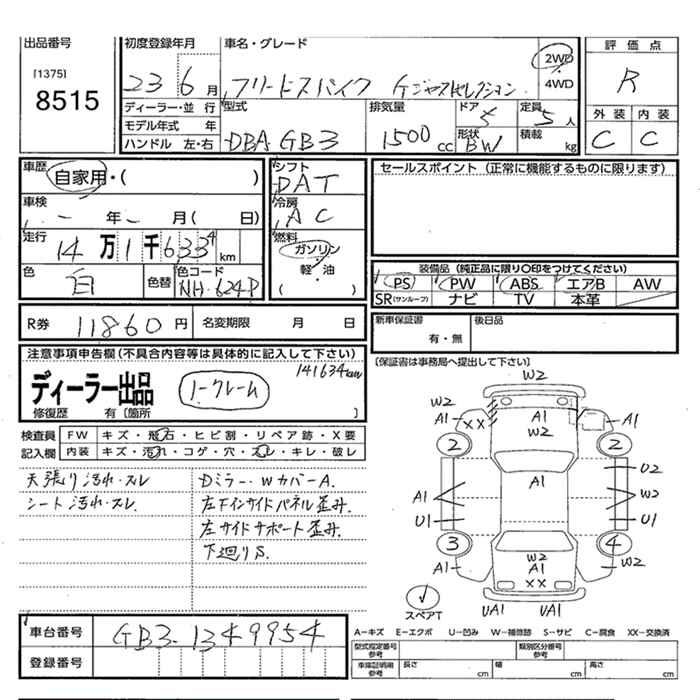 出品番号
[1375]
8515
初度登録年月
23 6 月
車名・グレード
フリードスパイク Gジャストセレクション
2WD
4WD
評価点
R
外装 内装
C C
ディーラー・並行
モデル年式 年
ハンドル 左・右
型式
DBA GB3
排気量
1500 cc
ドア
5
形状
BW
定員
5 人
積載
kg
車歴
自家用・( )
車検
年 月 ( 日)
走行
14 万 1 千 633 4 km
色
白
色替
色コード
NH-624P
シフト
DAT
冷房
AC
燃料
ガソリン
軽・油
( )
セールスポイント (正常に機能するものに限ります)
装備品 (純正品に限り○印をつけてください)
PS PW ABS エアB AW
SR(サンルーフ) ナビ TV 本革
R券 11860 円 名変期限 月 日
新車保証書
有・無
後日品
[保証書は事務局へ提出して下さい]
注意事項申告欄(不具合内容等は具体的に記入して下さい)
141634km
ディーラー出品 ノークレーム
修復歴 有 [箇所 ]
検査員 FW キズ・飛石・ヒビ割・リペア跡・X要
記入欄 内装 キズ・汚れ・コゲ・穴・スレ・キレ・破レ
天張り汚れ・スレ
シート汚れ・スレ
Dミラー・WカバーA.
左Fインサイドパネル歪み.
左サイドサポート歪み.
下廻りS.
W2
W2 A1 A1
XX W2
2 2
A1
A1 U2
W2
U1 U1
3 4
W2
A1 A1 W2
XX
スペアT
UA1 UA1
車台番号 GB3-1349954
登録番号
A-キズ E-エクボ U-凹み W-補修跡 S-サビ C-腐食 XX-交換済
型式指定番号 参考 類別区分番号 参考
車庫証明用 参考 長さ cm 幅 cm 高さ cm